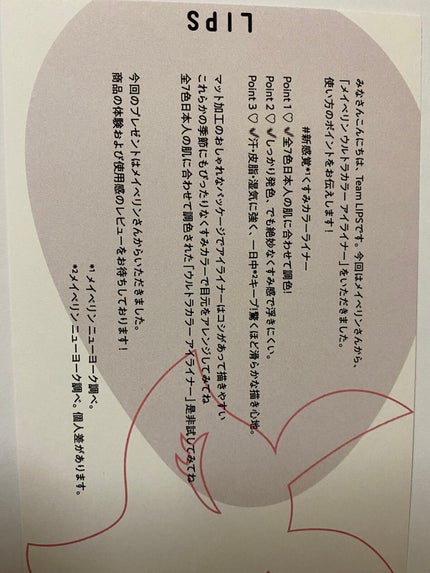 LIPS
みなさんこんにちは、Team LIPSです。今回はメイベリンさんから、
「メイベリン ウルトラカラー アイライナー」をいただきました。
使い方のポイントをお伝えします！
#新感覚*¹くすみカラーライナー
Point 1 ♡ ✔全7色日本人の肌に合わせて調色!
Point 2 ♡ ✔しっかり発色、でも絶妙なくすみ感で浮きにくい。
Point 3 ♡ ✔汗・皮脂・湿気に強く、一日中*²キープ!驚くほど滑らかな描き心地。
マット加工のおしゃれなパッケージでアイライナーはコシがあって描きやすい
これからの季節にもぴったりなくすみカラーで目元をアレンジしてみてね
全7色日本人の肌に合わせて調色された「ウルトラカラー アイライナー」是非試してみてね
今回のプレゼントはメイベリンさんからいただきました。
商品の体験および使用感のレビューをお待ちしております！
*1 メイベリン ニューヨーク調べ。
*2メイベリン ニューヨーク調べ。個人差があります。